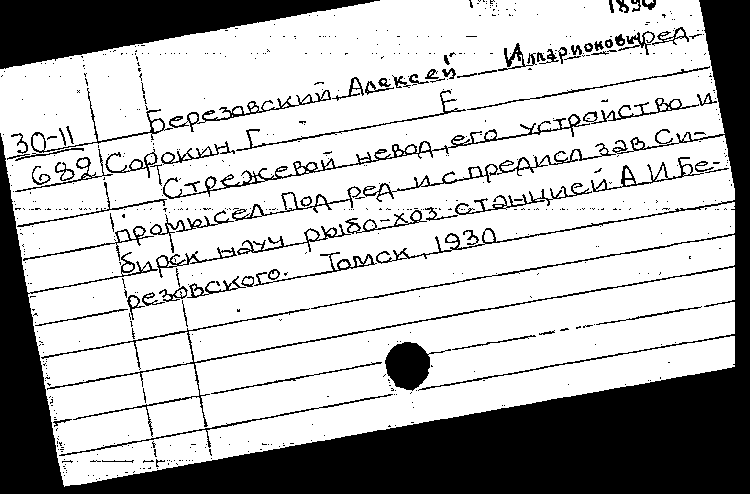 1890
Березовский, Алексей Илларионович ред.
30-11
Е
689 Сорокин, Г.
Стрежевой невод, его устройство и
промысел. Под ред. и с предисл зав. Си-
бирск науч рыбо-хоз станцией А. И. Бе-
резовского. Томск, 1930